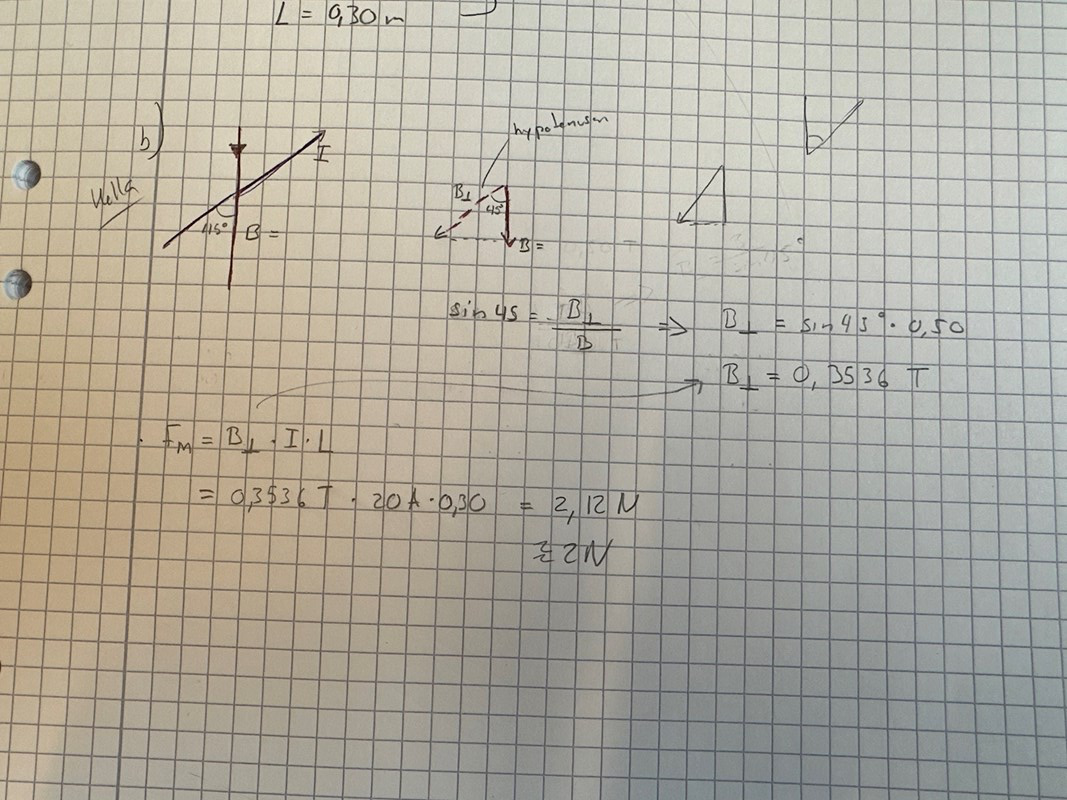 L = 0,30 m
b)
I
45°
B =
hypotenusen
B⊥
45°
B =
sin 45 = B⊥ / B ⇒ B⊥ = sin 45° · 0,50
B⊥ = 0,3536 T
Fm = B⊥ · I · L
= 0,3536 T · 20A · 0,30 = 2,12 N
≈ 2N